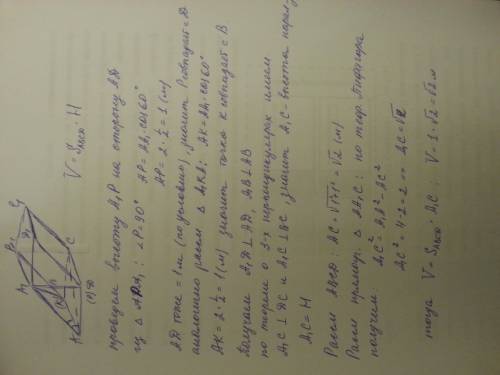 V = S_ABCD · H
проведем высоту A₁P на сторону AD
из △ APA₁: ∠P = 90° AP = AA₁ cos 60°
AP = 2 · 1/2 = 1 (м)
AD тоже = 1 м (по условию), значит P совпадает с D
аналогично рассм △ A₁KA: AK = AA₁ cos 60°
AK = 2 · 1/2 = 1 (м) значит точка K совпадает с B
Получаем A₁D ⊥ AD A₁B ⊥ AB
по теореме о 3-х перпендикулярах имеем
A₁C ⊥ DC и A₁C ⊥ BC, значит A₁C - высота
A₁C = H
Рассм ABCD: AC = √1+1 = √2 (м)
Рассм прямоуг. △ AA₁C: по теор. Пифагора
получим A₁C² = A₁A² - AC²
A₁C² = 4 - 2 = 2 A₁C = √2
тогда V = S_ABCD · A₁C V = 1 · √2 = √2 м